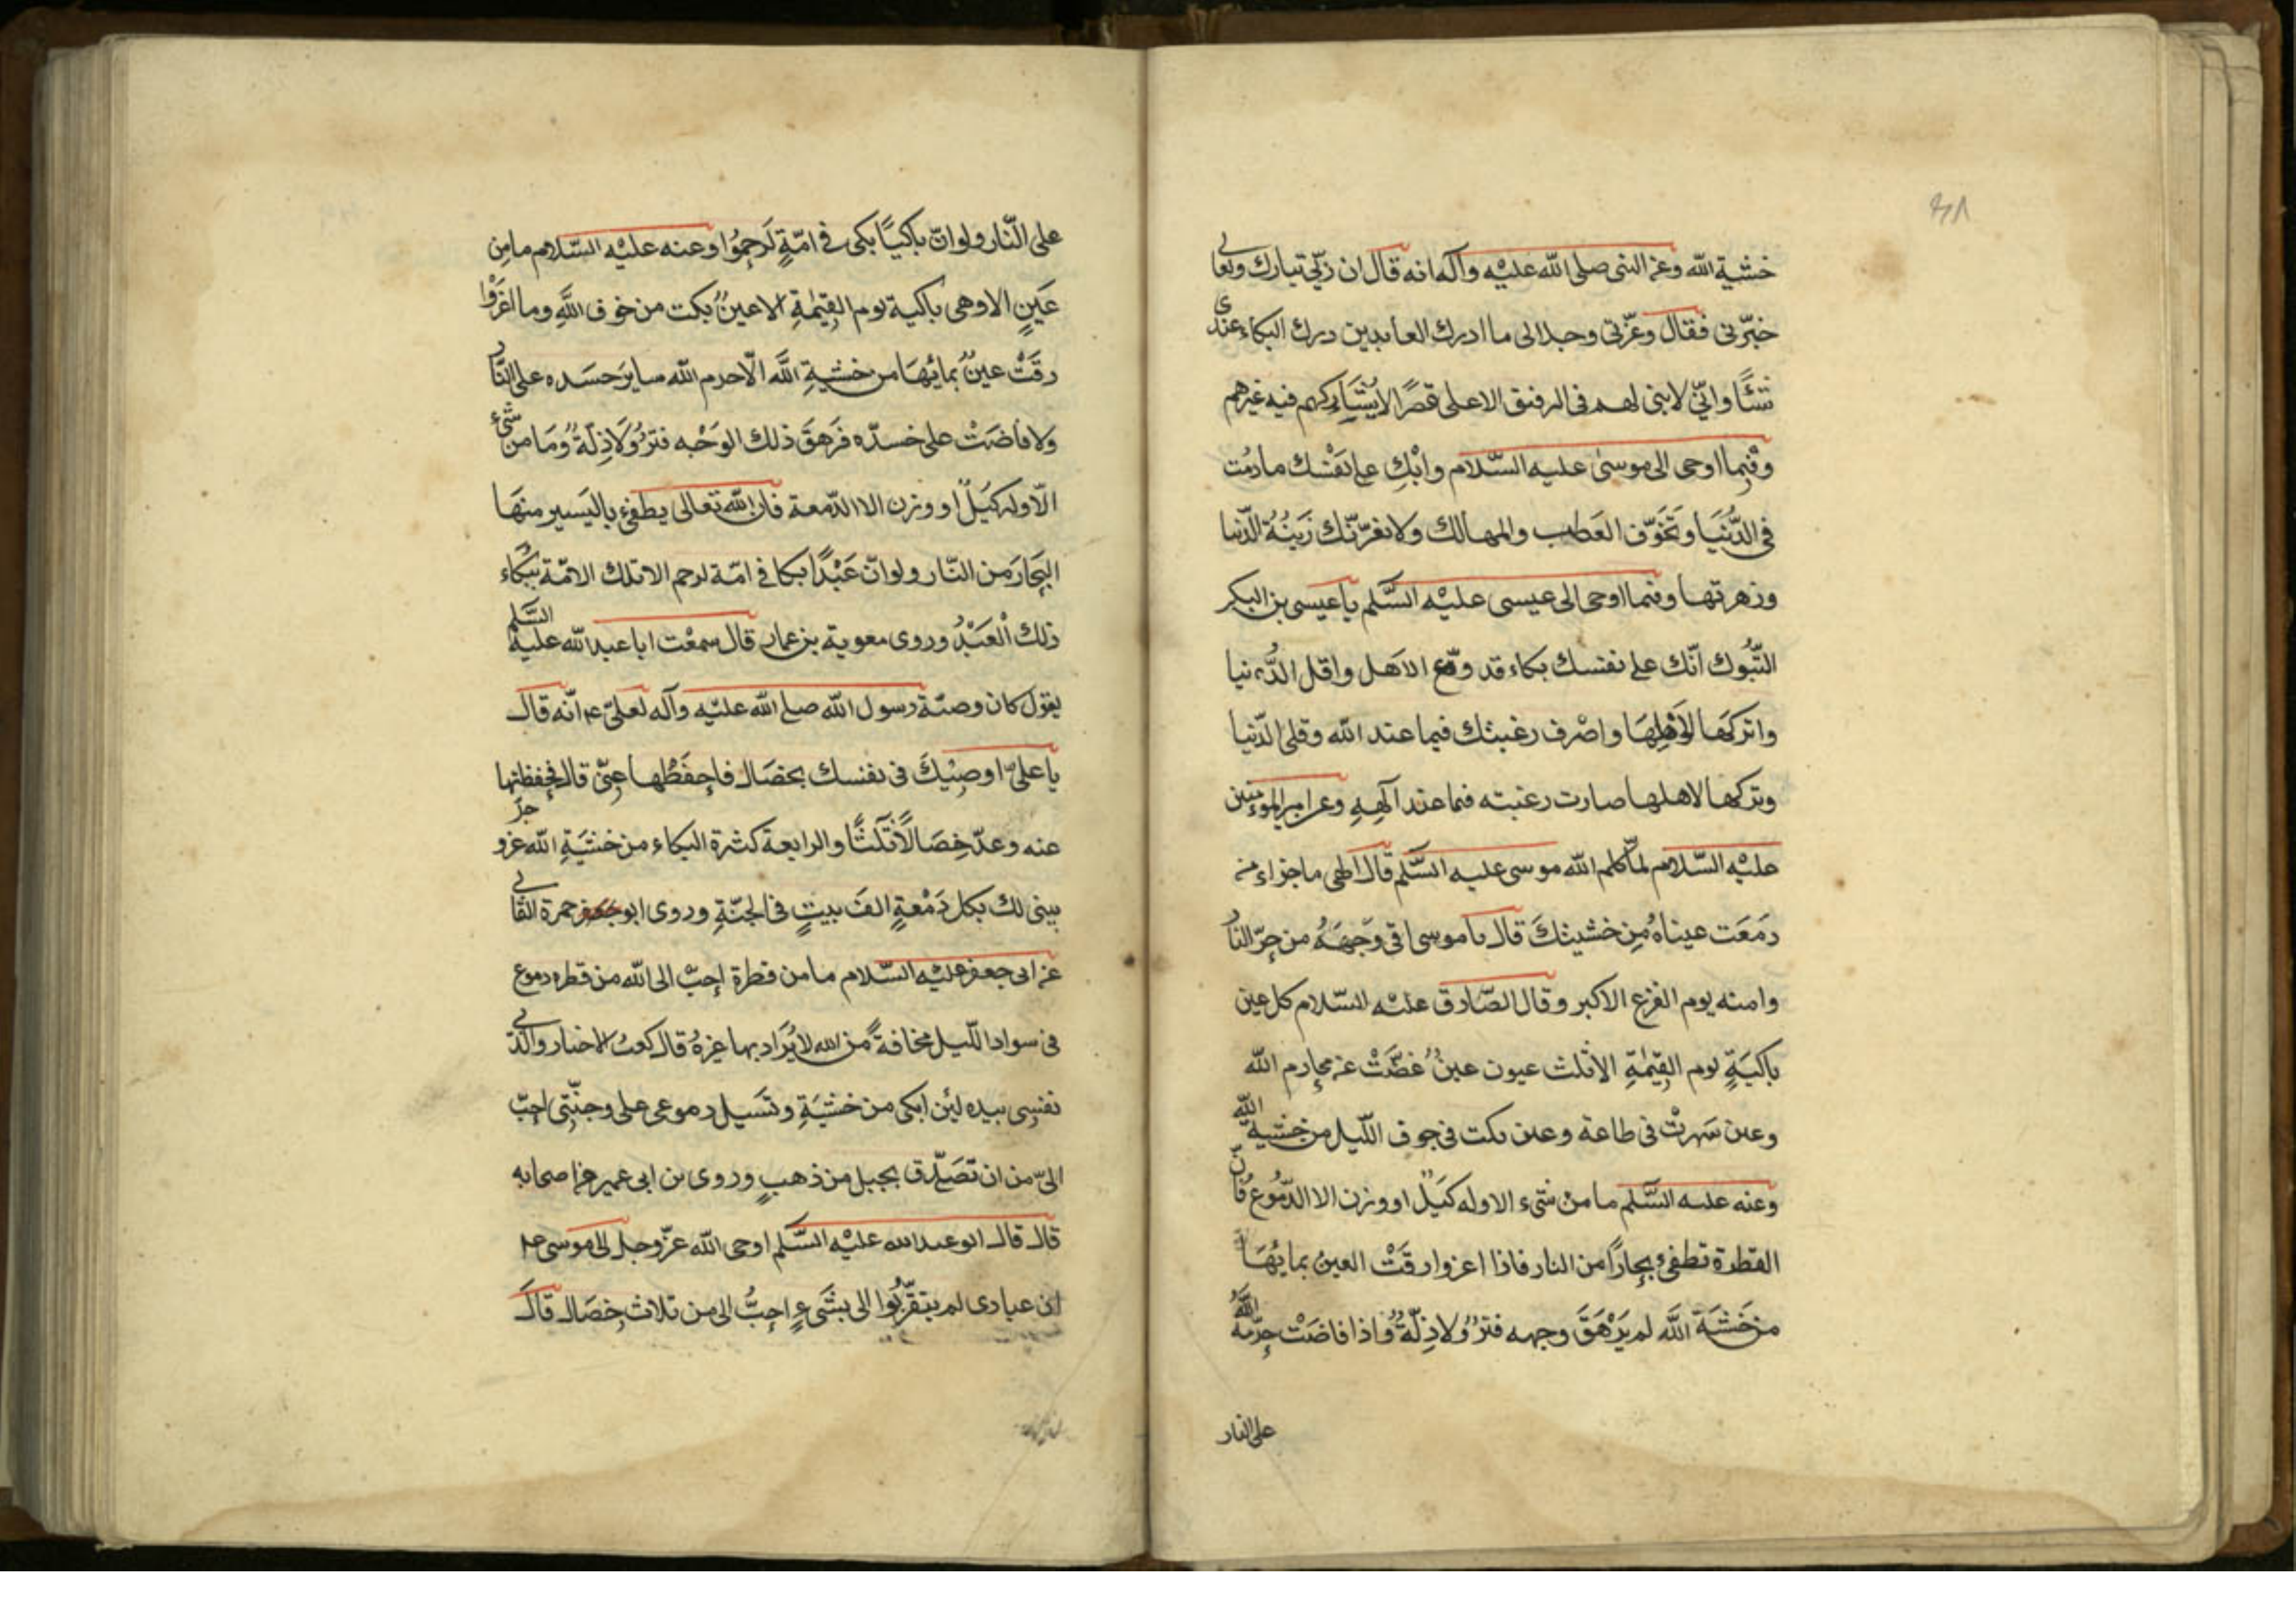 ٤٨
خشية الله وعن النبى صلى الله عليه وآله انه قال ان ربّى تبارك وتعالى
خبّرنى فقال وعزّتى وجلالى ما ادرك العابدين درك البكاء عندى
شئًا وانّى لابنى لهم فى الرفيق الاعلى قصرًا لا يُشَارِكهم فيه غيرهم
وفيما اوحى الى موسى عليه السّلام وابْكِ على نَفْسك مادمْت
فى الدُّنْيَا وتَخَوّف العَطَب والمهالك ولا تغرّنّك زَينَةُ الدّنيا
وزهرتها وفيما اوحى الى عيسى عليْه السَّلم يا عيسى بن البكر
التّبُوك انّك على نفسك بكاء قد ودّع الاهل واقل الدُّنيا
واتركهَا لاَهْلِهَا واصْرف رغبتك فيما عند الله وقلى الدّنيا
وتركها لاهلها صارت رغبته فيما عند آلهِهِ وعن امير المؤمنين
عليْه السّلام لمّا كلم الله موسى عليه السَّلم قال الهى ما جزاء من
دمَعَت عيناهُ مِن خشيتكَ قال يا موسى اقى وَجهَهُ من حرّ النار
وامنه يوم الفزع الاكبر وقال الصّادق عليْه السّلام كل عين
باكيَةٍ يوم القِيمَةِ الا ثلث عيون عينٌ غضّتْ عن محارم الله
وعين سَهرتْ فى طاعة وعين بكت فى جوف اللّيل من خشية الله
وعنه عليه السَّلم ما منْ شىء الا وله كَيَلٌ او وزن الا الدّمُوع فان
القطرة تطفئ بِحارًا من النار فاذا اغرورقَتْ العينُ بمائهَا
من خَشيَة اللَّه لم يَرْهَقَ وجهه قترٌ ولا ذِلّةٌ واذا فاضَتْ حرّمه اللَّهُ
على النار
على النّار ولو انّ باكيًا بكى فى امّةٍ لَرحِمُوا وعنه عليْه السّلام ما مِن
عَينٍ الا وهى باكية يوم القِيمَةِ الا عينٌ بكت من خوف اللَّهِ وما اغرَوْ
رقَتْ عينٌ بمائهَا من خشيةِ اللَّه الّا حرم الله سايرَ جسَده على النّار
ولا فاضَتْ على خدّه فرَهِقَ ذلك الوَجْه قترٌ ولَا ذِلّةٌ ومَا من شىء
الّا وله كَيَلٌ او وزن الا الدّمعة فان الله تعالى يطفئ باليَسير منهَا
البِحارَ من النّار ولو انّ عَبْدًا بكا فى امّة لرحم الا تلك الامّة ببُكاء
ذلك الْعَبْدُ وروى معوية بن عمار قال سمعْت ابا عبد الله عليه السَّلم
يقول كان وصيّة رسول الله صلى الله عليْه وآله لعلىّ ع انّه قال
يا علىّ اوصِيْكَ فى نفسك بخصَال فاحفَظْها عنّى قال فحفظتها
عنه وعدّ خِصَالًا ثلثًا والرابعة كثرة البكاء من خشيَةِ الله عز وجلّ
يبنى لك بكل دَمْعةٍ الفَ بيتٍ فى الجنّةِ وروى ابو حمزة الثّمالى
عن ابى جعفر عليْه السّلام ما من قطرة احبّ الى الله من قطره دموع
فى سواد اللّيل مخافةً من الله لا يُرَاد بها غيرهُ قال كعبُ الاحبار والّذى
نفسِى بيده لئِن ابكى من خشيَةِ وتسَيل دموعى على وجنّتى احبّ
الىّ من ان تصَدّق بجبل من ذهبٍ وروى بن ابى عمير عن اصحابه
قال قال ابو عبد الله عليْه السَّلم اوحى الله عزّ وجل الى موسى ع
ان عبادى لم يتقرّبُوا الى بشَىءٍ احبُّ الى من ثلاث خِصَال قالَ